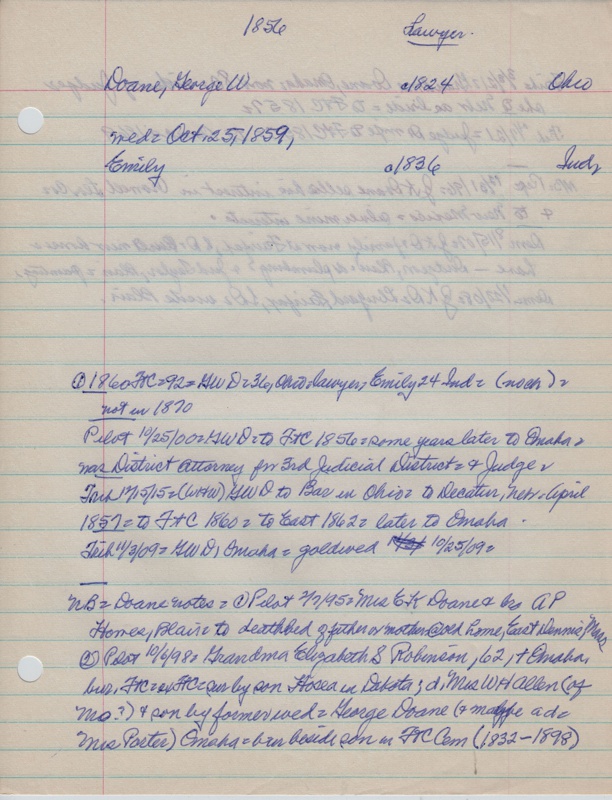 1856 Lawyer.
Doane, George W c1824 Ohio
wed= Oct. 25, 1859,
Emily c1836 Ind=
① 1860 FtC=92= GWD=36, Ohio=lawyer, Emily 24 Ind= (no ch)=
not in 1870
Pilot 10/25/00= GWD= to FtC 1856= some years later to Omaha=
was District Attorney for 3rd Judicial District= & Judge=
Trib 12/5/15= (WHW) GWD to Bar in Ohio= to Decatur, Nebr= April
1857= to FtC 1860= to East 1862= later to Omaha.
Trib 11/3/09= GWD, Omaha= goldwed 10/25/09=
NB= Doane notes= ① Pilot 2/7/95= Mrs EK Doane & bro AP
Homes, Blair= to deathbed of father or mother @ old home, East Dennis, Mass
② Pilot 10/6/98= Grandma Elizabeth S Robinson, 62, + Omaha,
bur, FtC= FtC= sur by son Hosea in Dakota; d, Mrs WH Allen (of
Mo.?) & son by former wed= George Doane (& maybe a d=
Mrs Porter) Omaha= bur beside son in FtC Cem (1832-1898)